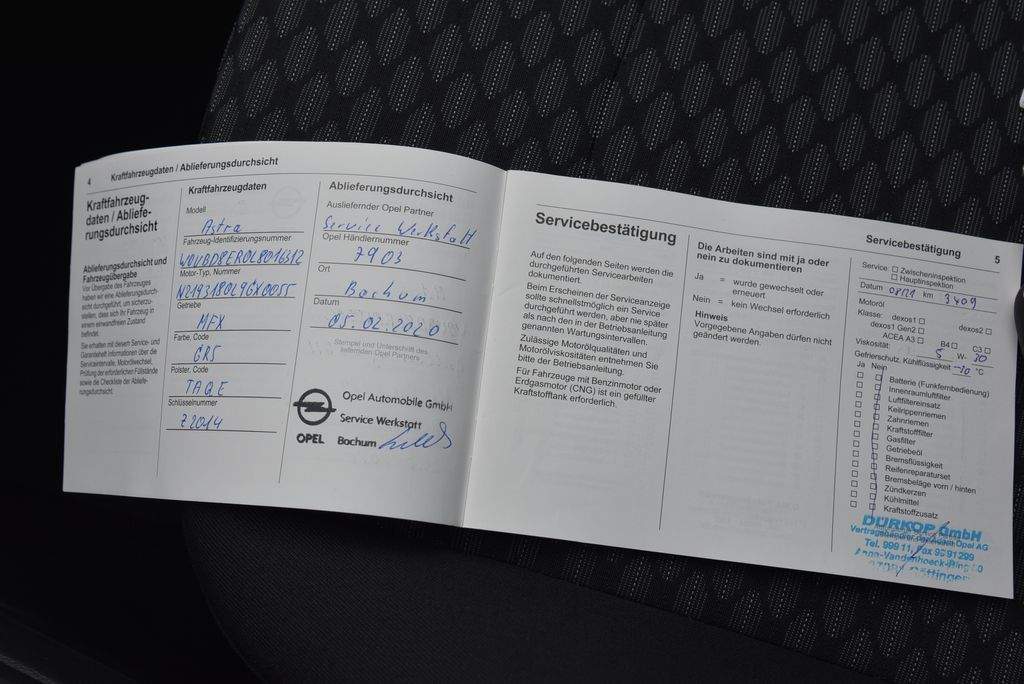 4 Kraftfahrzeugdaten / Ablieferungsdurchsicht
Kraftfahrzeug-
daten / Abliefe-
rungsdurchsicht
Ablieferungsdurchsicht und
Fahrzeugübergabe
Vor Übergabe des Fahrzeuges
haben wir eine Ablieferungsdurch-
sicht durchgeführt, um sicherzu-
stellen, dass sich Ihr Fahrzeug in
einem einwandfreien Zustand
befindet.
Sie erhalten mit diesem Service- und
Garantieheft Informationen über die
Serviceintervalle, Motorölwechsel,
Prüfung der erforderlichen Füllstände
sowie die Checkliste der Abliefe-
rungsdurchsicht.
Kraftfahrzeugdaten
Modell
Astra
Fahrzeug-Identifizierungsnummer
Motor-Typ, Nummer
Getriebe
MFX
Farbe, Code
GR5
Polster, Code
TAQE
Schlüsselnummer
Z2014
Ablieferungsdurchsicht
Ausliefernder Opel Partner
Service Werkstatt
Opel Händlernummer
7903
Ort
Bochum
Datum
05.02.2020
Stempel und Unterschrift des
liefernden Opel Partners
Opel Automobile GmbH
Service Werkstatt
OPEL Bochum
Servicebestätigung 5
Servicebestätigung
Auf den folgenden Seiten werden die
durchgeführten Servicearbeiten
dokumentiert.
Beim Erscheinen der Serviceanzeige
sollte schnellstmöglich ein Service
durchgeführt werden, aber nie später
als nach den in der Betriebsanleitung
genannten Wartungsintervallen.
Zulässige Motorölqualitäten und
Motorölviskositäten entnehmen Sie
bitte der Betriebsanleitung.
Für Fahrzeuge mit Benzinmotor oder
Erdgasmotor (CNG) ist ein gefüllter
Kraftstofftank erforderlich.
Die Arbeiten sind mit ja oder
nein zu dokumentieren
Ja = wurde gewechselt oder
erneuert
Nein = kein Wechsel erforderlich
Hinweis
Vorgegebene Angaben dürfen nicht
geändert werden.
Service: Zwischeninspektion
Hauptinspektion
Datum km 3409
Motoröl
Klasse: dexos1 dexos2
dexos1 Gen2 B4 C3
ACEA A3
Viskosität: 5 W- 30
Gefrierschutz, Kühlflüssigkeit °C
Ja Nein
Batterie (Funkfernbedienung)
Innenraumluftfilter
Luftfiltereinsatz
Keilrippenriemen
Zahnriemen
Kraftstofffilter
Gasfilter
Getriebeöl
Bremsflüssigkeit
Reifenreparaturset
Bremsbeläge vorn / hinten
Zündkerzen
Kühlmittel
Kraftstoffzusatz
DÜRKOP GmbH
Vertragshändler der Adam Opel AG
Tel. 999 11, Fax 99 91 299
Anna-Vandenhoeck-Ring
Göttingen